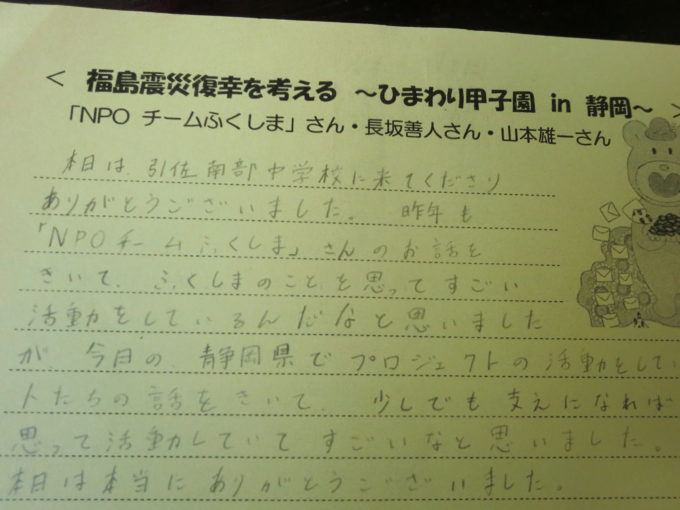 ＜ 福島震災復幸を考える ～ひまわり甲子園 in 静岡～ ＞
「NPO チームふくしま」さん・長坂善人さん・山本雄一さん
本日は、引佐南部中学校に来てくださり
ありがとうございました。 昨年も
「NPOチームふくしま」さんのお話を
きいて、ふくしまのことを思ってすごい
活動をしているんだなと思いました
が、今日の、静岡県でプロジェクトの活動をしてい
人たちの話をきいて、少しでも支えになれば
思って活動していてすごいなと思いました。
本日は本当にありがとうございました。